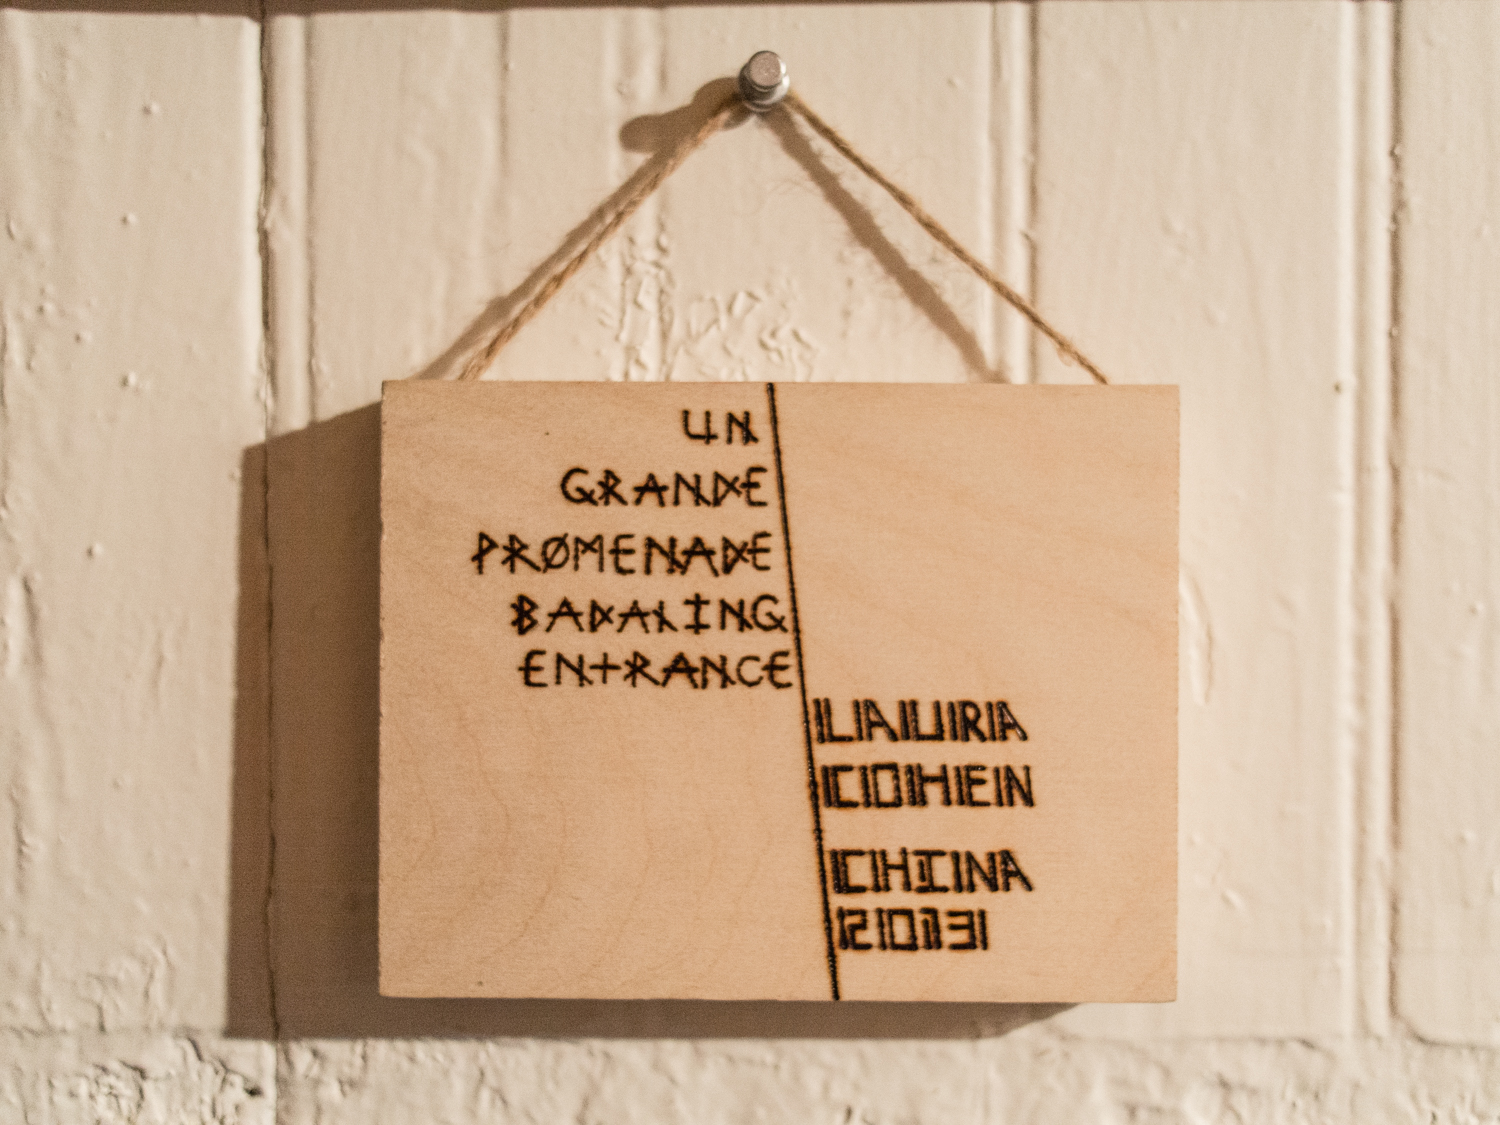 UN
GRANDE
PROMENADE
BADALING
ENTRANCE
LAURA
COHEN
CHINA
2013